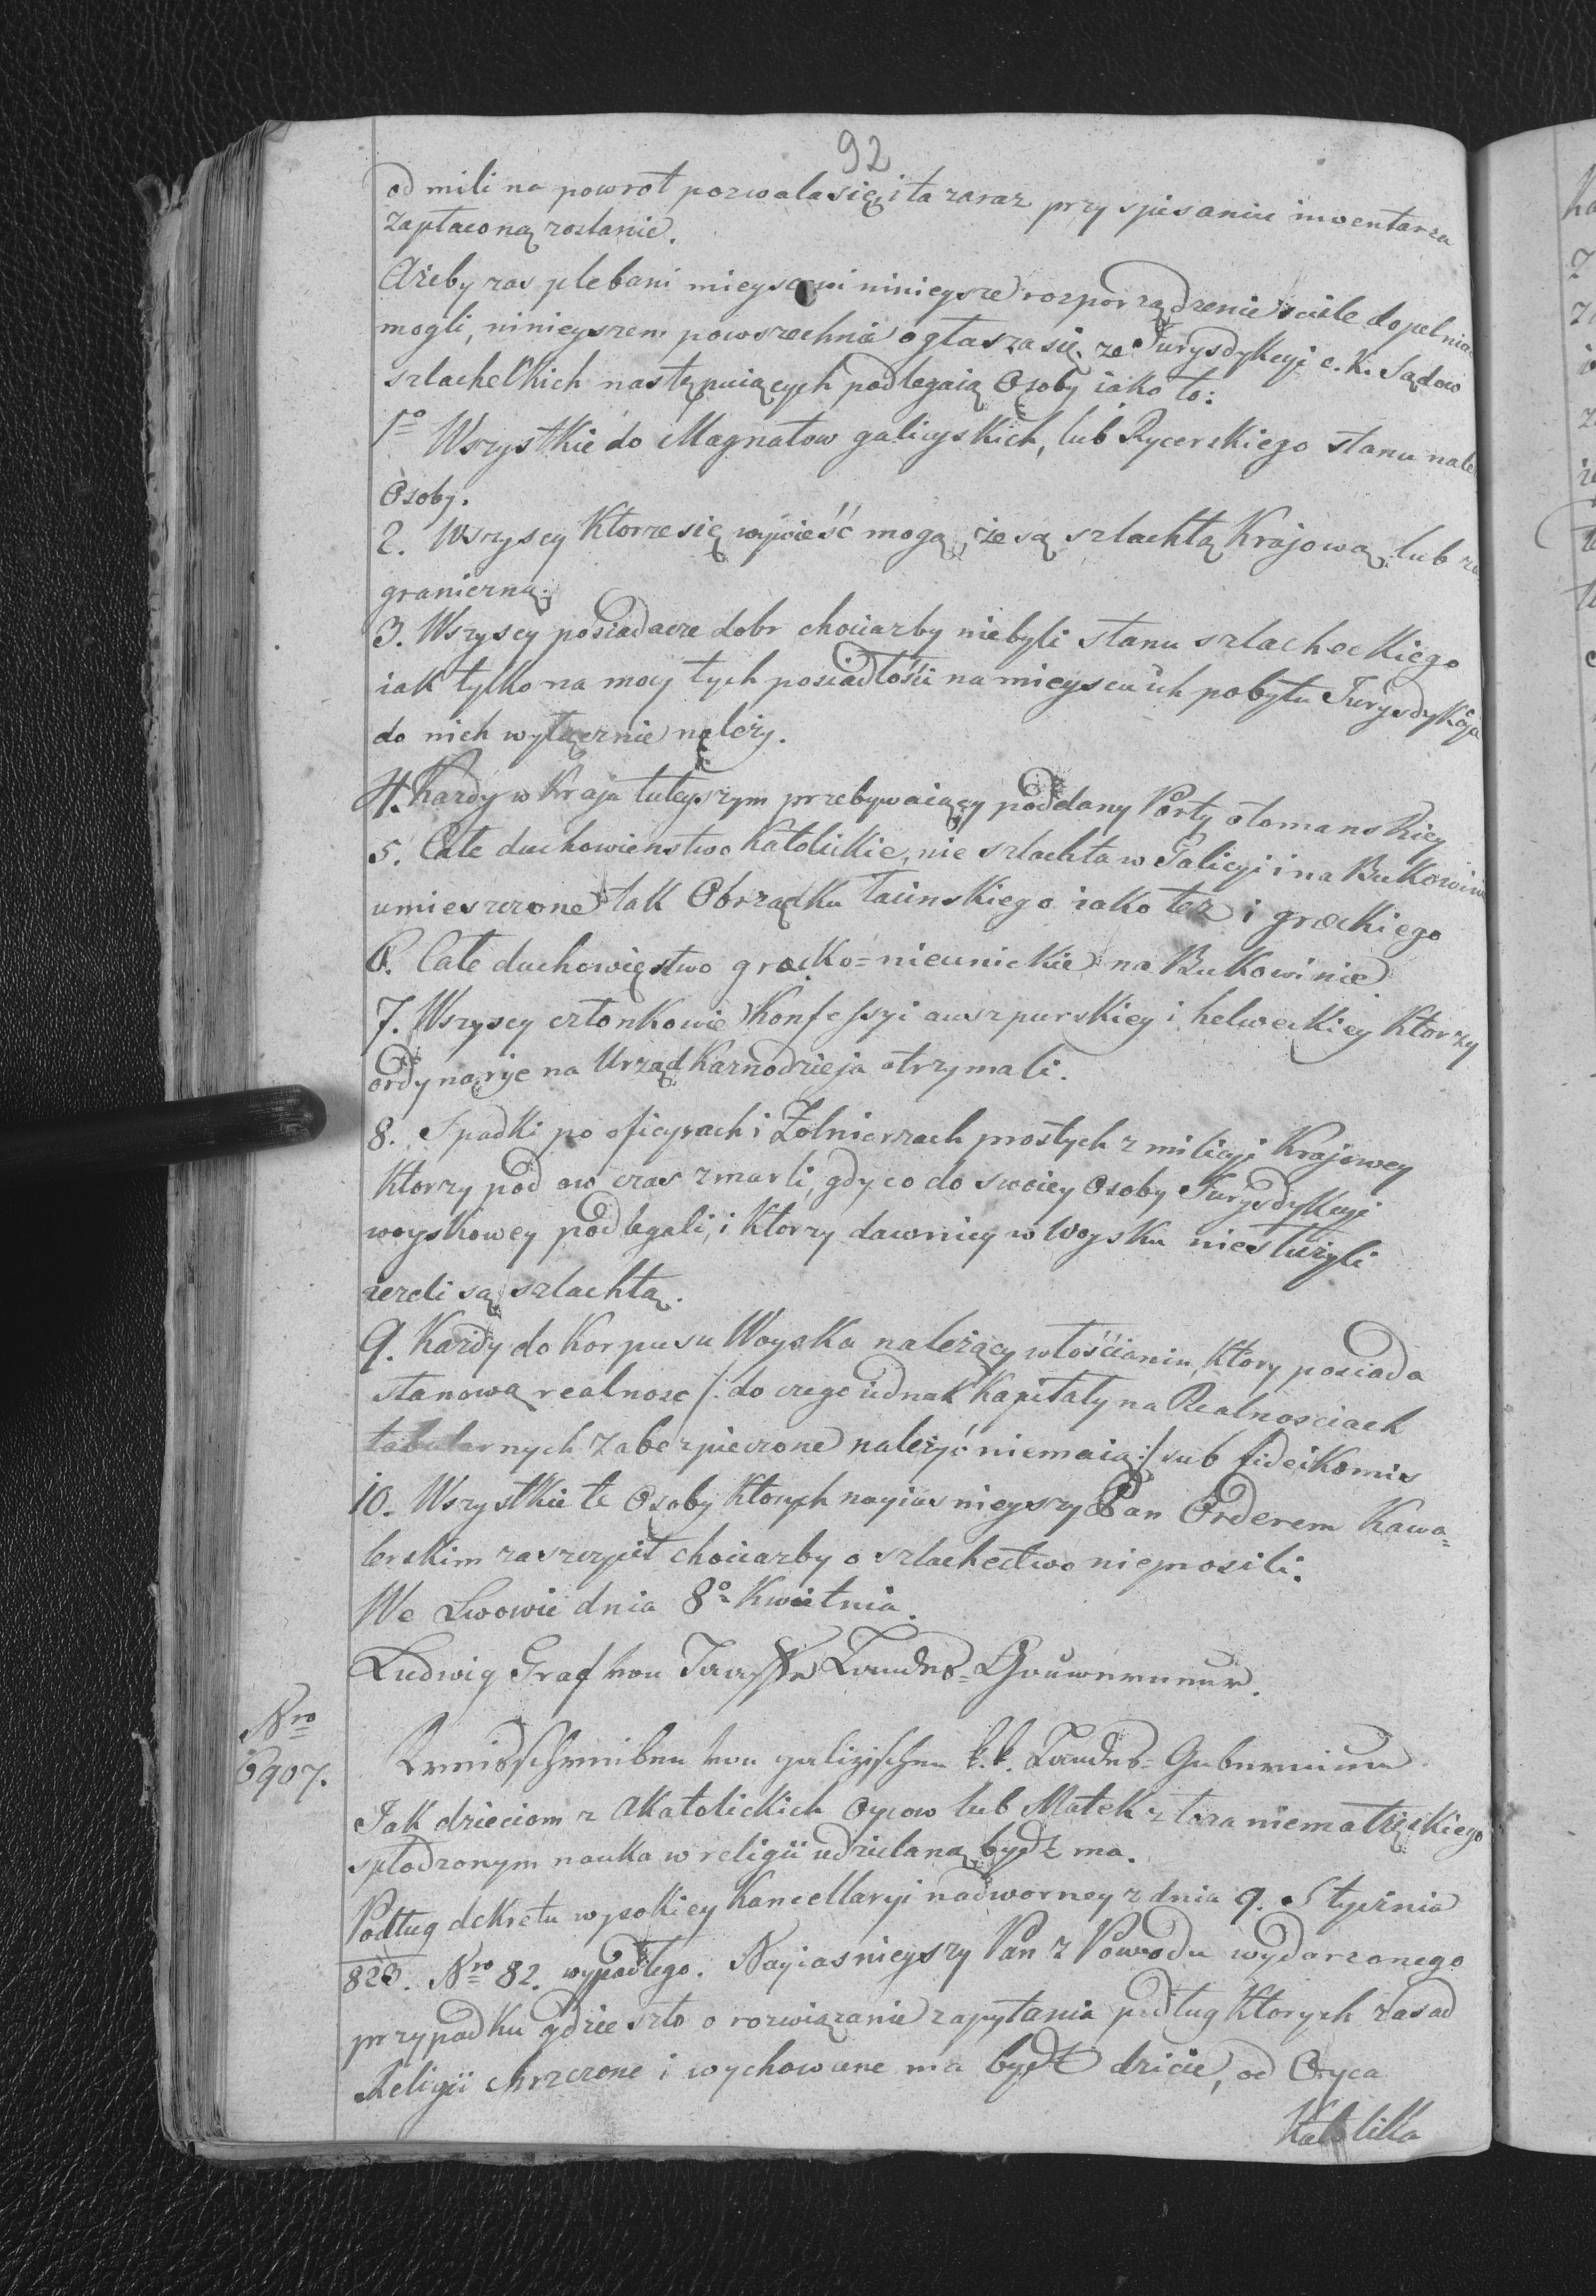 92
od mili na powrot pozwala się, i ta zaraz przy spisaniu inwentarza
zapłaconą zostanie.
Ażeby zas plebani mieyscowi ninieysze rozporządzenie scisle dopelniac
mogli, ninieyszem powszechnie ogłasza się, ze Jurysdykcyi c. K. Sądow
szlacheckich następuiących podlegaią Osoby iako to:
1o Wszystkie do Magnatow galicyskich, lub Rycerskiego stanu
Osoby.
2. Wszyscy Ktorze się wywieść mogą, że są szlachtą Krajową, lub za
graniczną.
3. Wszyscy posiadacze dobr chociazby niebyli stanu szlacheckiego
iak tylko na mocy tych posiadłości na mieyscu ich pobytu Jurysdykcya
do nich wyłącznie należy.
4. Każdy w Kraju tuteyszym przebywaiący poddany Porty otomanskiey
5. Całe duchowienstwo Katolickie, nie szlachta w Galicyi i na Bukowinie
umieszczone tak Obrządku łacinskiego iako tez i greckiego
6. Całe duchowięstwo gracko=nieunickie na Bukowinie
7. Wszyscy członkowie Konfessyi auszpurskiey i helweckiey Ktorzy
ordynaryę na Urząd Kaznodzieja otrzymali.
8. Spadki po oficyrach i Zołnierzach prostych z milicyi Krajowey
Ktorzy pod ow czas zmarli, gdy co do swoiey Osoby Jurysdykcyi
woyskowey podlegali, i Ktorzy dawniey w Woysku niesłużyli
iezeli są szlachtą.
9. Każdy do Korpusu Woyska należący włościanin, Ktory posiada
stanową realnosc /: do czego iednak Kapitały na Realnosciach
tabularnych zabezpieczone należyć niemaią :/ sub fideikomis
10. Wszystkie te Osoby Ktorych nayiasnieyszy Pan Orderem Kawa=
lerskim zaszczycił chociazby o szlachectwo nieprosili.
We Lwowie dnia 8o Kwietnia.
Ludwig Graf von Taaffe Landes=Gouverneur.
Nro
6907.
Kreisschreiben von galizischen k. k. Landes=Gubernium
Jak dzieciom z Akatolickich Oycow lub Matek z łoza niematżęskiego
spłodzonym nauka w religii udzielaną bydź ma.
Podług dekretu wysokiey Kancellaryi nadworney z dnia 9. Stycznia
823. Nro 82. wypadłego. Nayiasnieyszy Pan z Powodu wydarzonego
przypadku gdzie szło o rozwiązanie zapytania podług Ktorych zasad
Religii chrzczone i wychowane ma bydź dzicie, od Oyca
Katolika